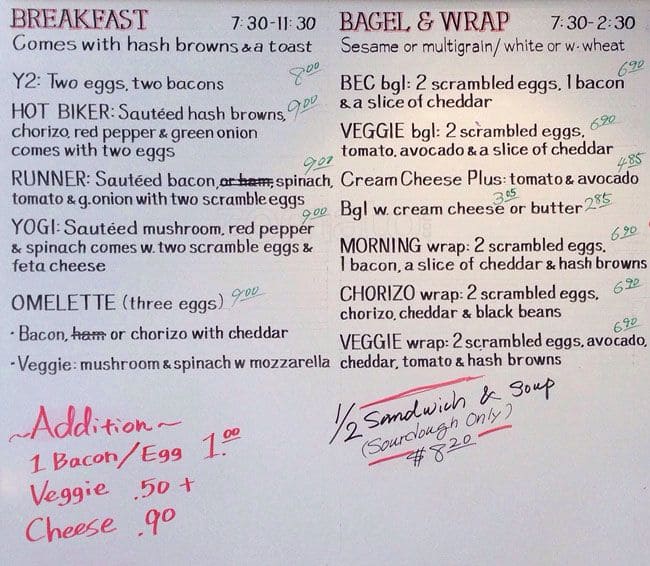 BREAKFAST 7:30-11:30
Comes with hash browns & a toast
Y2: Two eggs, two bacons 8.00
HOT BIKER: Sautéed hash browns, 9.00
chorizo, red pepper & green onion
comes with two eggs
RUNNER: Sautéed bacon, or ham, spinach, 9.00
tomato & g.onion with two scramble eggs
YOGI: Sautéed mushroom, red pepper 9.00
& spinach comes w. two scramble eggs &
feta cheese
OMELETTE (three eggs) 9.00
· Bacon, ham or chorizo with cheddar
· Veggie: mushroom & spinach w mozzarella
~Addition~
1 Bacon/Egg 1.00
Veggie .50 +
Cheese .90
BAGEL & WRAP 7:30-2:30
Sesame or multigrain/ white or w. wheat
BEC bgl: 2 scrambled eggs, 1 bacon 6.90
& a slice of cheddar
VEGGIE bgl: 2 scrambled eggs, 6.90
tomato, avocado & a slice of cheddar
Cream Cheese Plus: tomato & avocado 4.85
Bgl w. cream cheese 3.05 or butter 2.85
MORNING wrap: 2 scrambled eggs, 6.90
1 bacon, a slice of cheddar & hash browns
CHORIZO wrap: 2 scrambled eggs, 6.90
chorizo, cheddar & black beans
VEGGIE wrap: 2 scrambled eggs, avocado, 6.90
cheddar, tomato & hash browns
1/2 Sandwich & Soup
(Sourdough Only)
$8.20